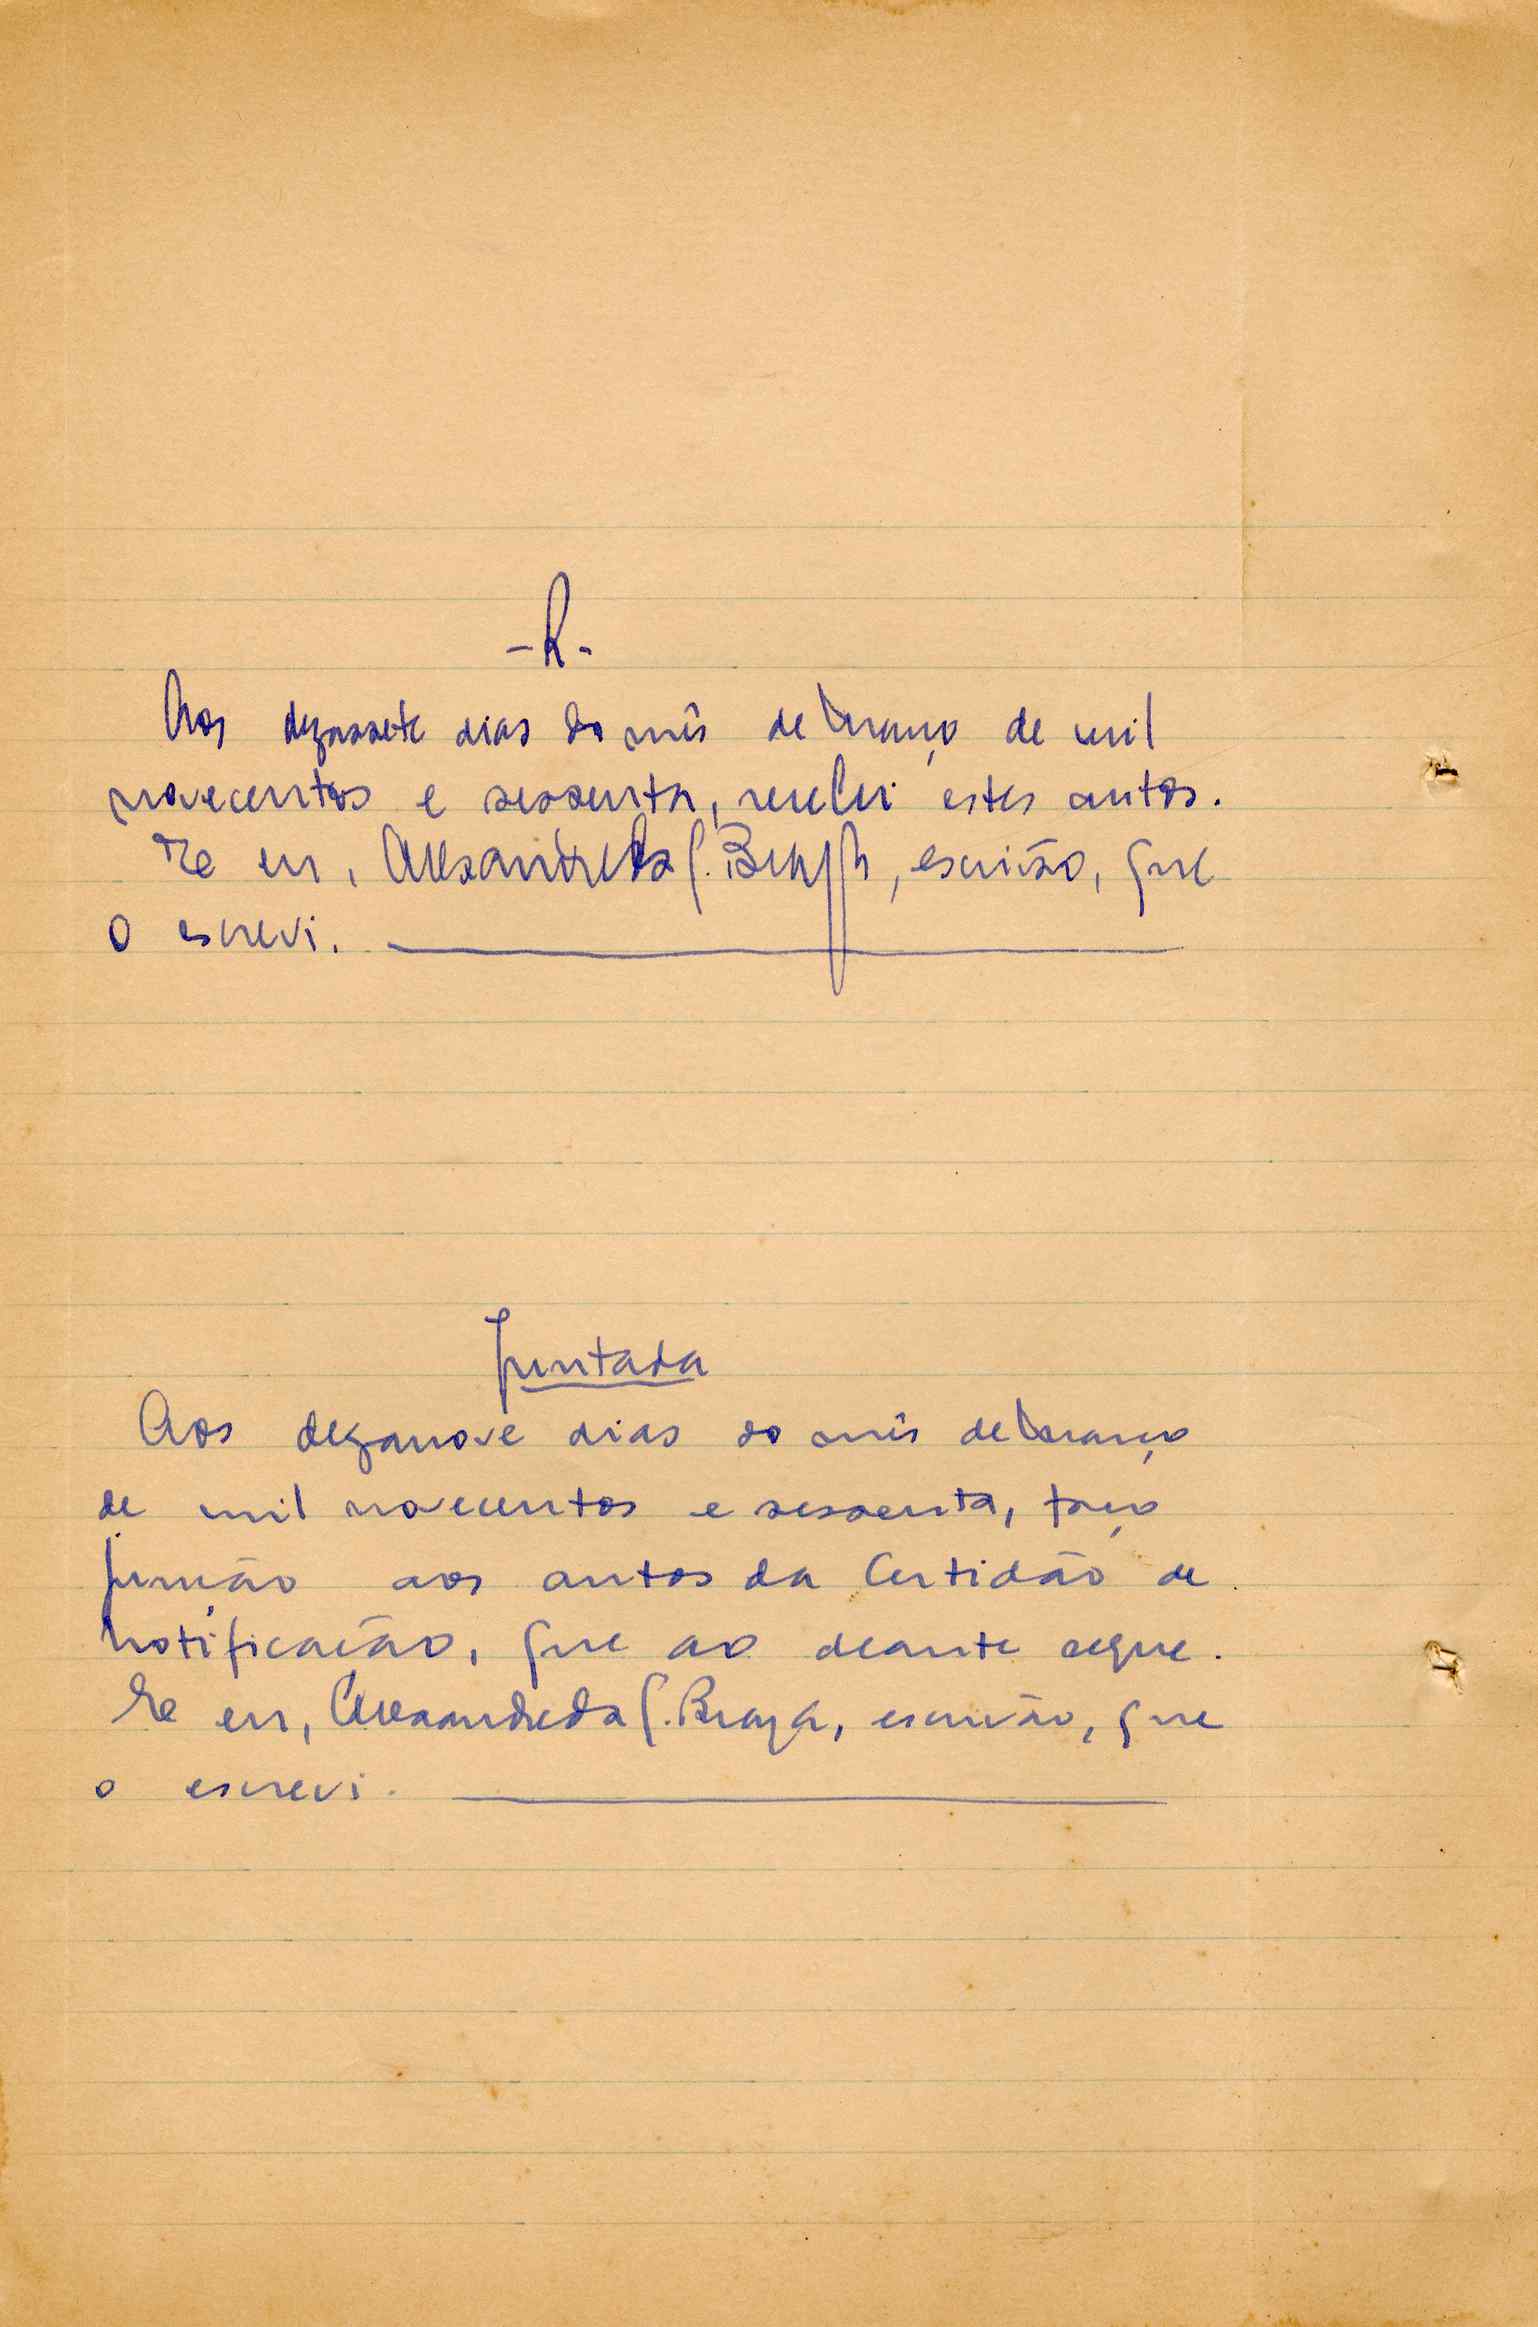 - R -
Aos dezassete dias do mês de março de mil
novecentos e sessenta, recebi estes autos.
eu, Alexandre da S. Braga, escrivão, que
o escrevi.
Juntada
Aos dezanove dias do mês de março
de mil novecentos e sessenta, faço
junção aos autos da Certidão de
notificação, que ao deante segue.
eu, Alexandre da S. Braga, escrivão, que
o escrevi.